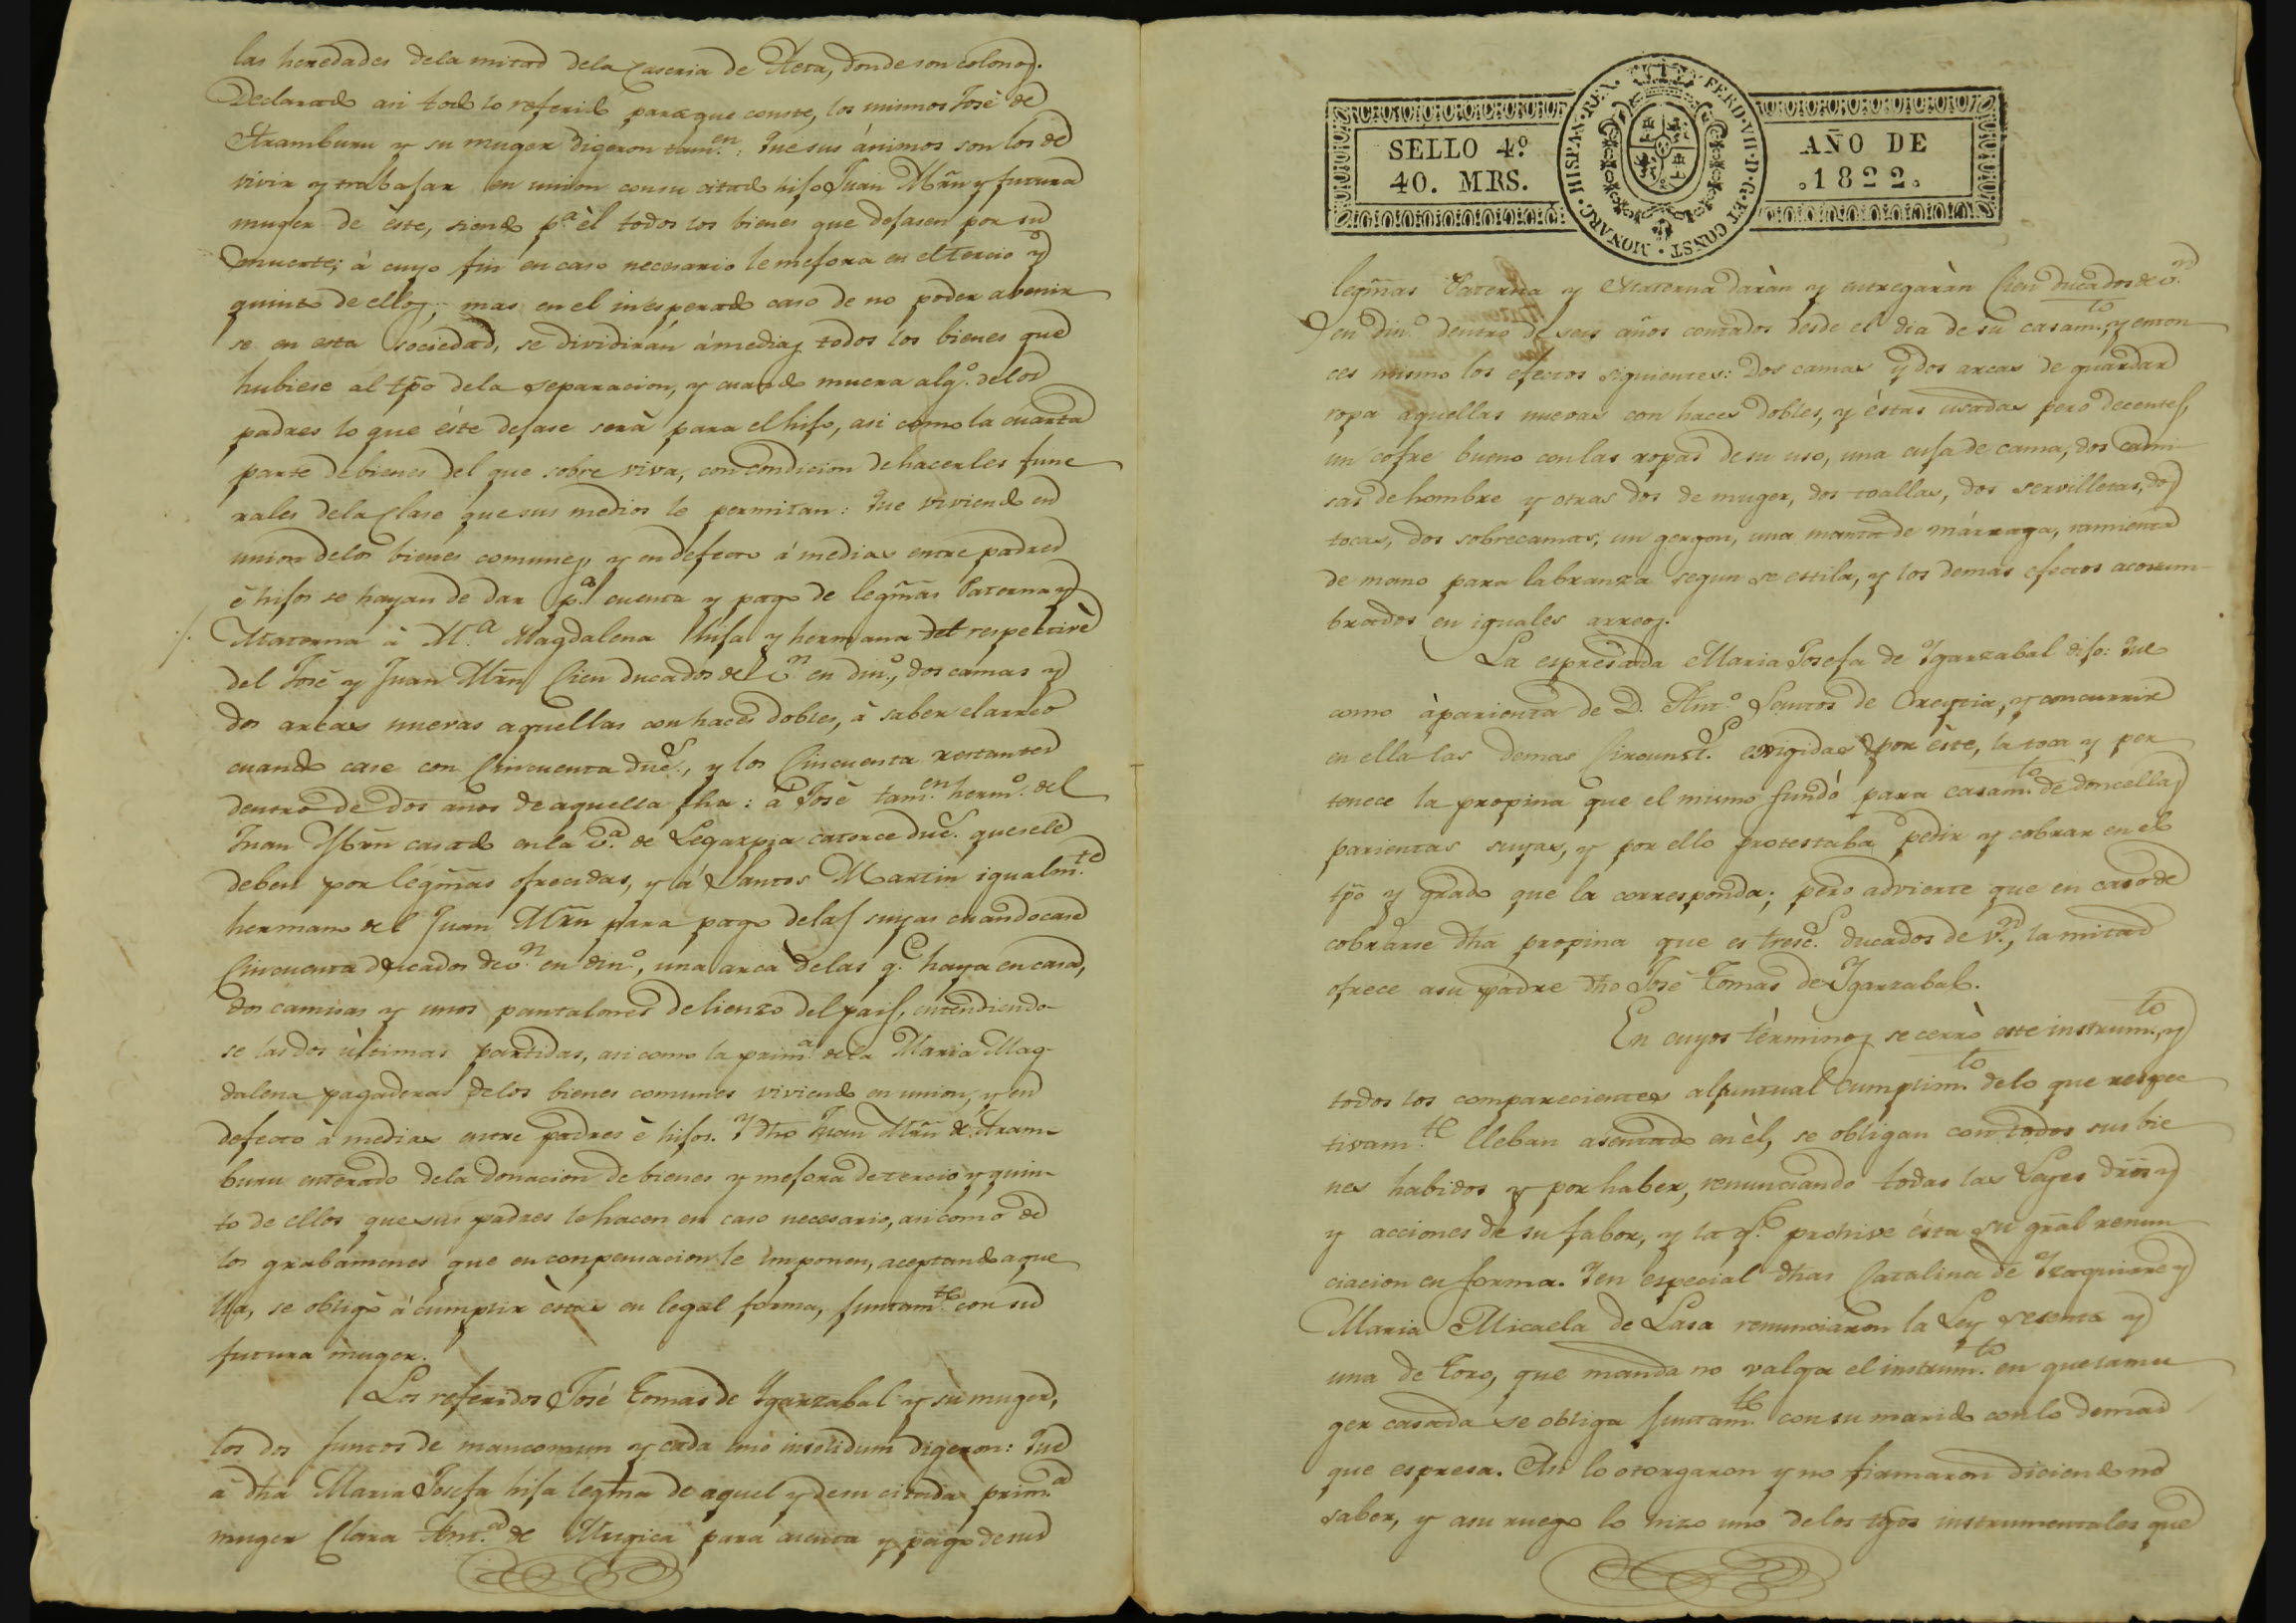 las heredades dela mitad dela Caseria de Aeta, donde son colonos.
Declarado asi todo lo referido paraque conste, los mismos José de
Aramburu y su muger digeron tam.en: Que sus ánimos son los de
vivir y trabajar en union consu citado hijo Juan Mrn y futura
muger de éste, siendo p.a él todos los bienes que dejasen por su
muerte; á cuyo fin en caso necesario le mejora en el tercio y
quinto de ellos; mas en el inesperado caso de no poder abenir
se en esta sociedad, se dividirán ámedias todos los bienes que
hubiese al tpo dela separacion, y cuando muera alg.o delos
padres lo que éste dejase será para el hijo, asi como la cuarta
parte debienes del que sobre viva, con condicion dehacerles fune
rales dela Clase que sus medios le permitan: Que viviendo en
union delos bienes comunes, y en defecto á medias entre padres
é hijos se hayan de dar p.a cuenta y pago de legmas Paterna y
Materna á M.a Magdalena hija y hermana del respective
del José y Juan Mrn Cien ducados de v.n en din.o, dos camas y
dos arcas nuevas aquellas con haces dobles, á saber el arreo
cuando case con Cincuenta duc.s, y los Cincuenta restantes
dentro de dos años de aquella fha: á José tam.en herm.o del
Juan Mrn casado en la v.a de Legazpia catorce duc.s que se le
deben por legmas ofrecidas, y á Santos Martin igualm.te
hermano del Juan Mrn para pago delas suyas cuando case
Cincuenta ducados de v.n en din.o, una arca delas q.e haya en casa,
dos camisas y unos pantalones de lienzo del pais, entendiendo-
se las dos últimas partidas, asi como la prim.a dela Maria Mag-
dalena pagaderas delos bienes comunes viviendo en union, y en
defecto á medias entre padres é hijos. Y dho Juan Mrn de Aram-
buru enterado dela donacion de bienes y mejora de tercio y quin-
to de ellos que sus padres le hacen en caso necesario, asi como de
los grabamenes que en conpensacion le imponen, aceptando aque
lla, se obligó á cumplir éstas en legal forma, juntam.te con su
futura muger.
Los referidos José Tomas de Ygarzabal y su muger,
los dos juntos de mancomun y cada uno insolidum digeron: Que
á dha Maria Josefa hija legma de aquel y de su citada prim.a
muger Clara Ant.a de Mugica para cuenta y pago de sus
HISPAN·REX· FERD·VII·D·G·ET CONST·MONARC·
SELLO 4º
40. MRS.
AÑO DE
.1822.
legmas Paterna y Materna darán y entregarán Cien ducados de v.n
en din.o dentro de seis años contados desde el dia de su casam.to, y enton
ces mismo los efectos siguientes: Dos camas y dos arcas de guardar
ropa aquellas nuevas con haces dobles, y éstas usadas pero decentes,
un cofre bueno con las ropas de su uso, una cuja de cama, dos cami-
sas de hombre y otras dos de muger, dos toallas, dos servilletas, dos
tocas, dos sobrecamas, un gergon, una manta de márraga, ramienta
de mano para labranza segun se estila, y los demas efectos acostum-
brados en iguales arreos.
La espresada Maria Josefa de Ygarzabal dijo: Que
como áparienta de D. Ant.o Santos de Oreytia, y concurrir
en ella las demas Circunst.s exigidas por éste, la toca y per
tenece la propina que el mismo fundó para casam.to de doncellas
parientas suyas, y por ello protestaba pedir y cobrar en el
tpo y grado que la corresponda; pero advierte que en caso de
cobrarse dha propina que es tresc.s ducados de v.n, la mitad
ofrece asu padre dho José Tomas de Ygarzabal.
En cuyos términos se cerró este instrum.to, y
todos los comparecientes al puntual cumplim.to delo que respec
tivam.te lleban asentado en él, se obligan con todos sus bie
nes habidos y por haber, renunciando todas las Leyes dros y
y acciones de su fabor, y la q.e prohive ésta su gral renun
ciacion en forma. Y en especial dhas Catalina de Yzaguirre y
Maria Micaela de Lasa renunciaron la Ley sesenta y
una de Toro, que manda no valga el instrum.to en que la mu
ger casada se obliga juntam.te con su marido con lo demas
que espresa. Asi lo otorgaron y no firmaron diciendo no
saber, y asu ruego lo hizo uno delos tgos instrumentales que